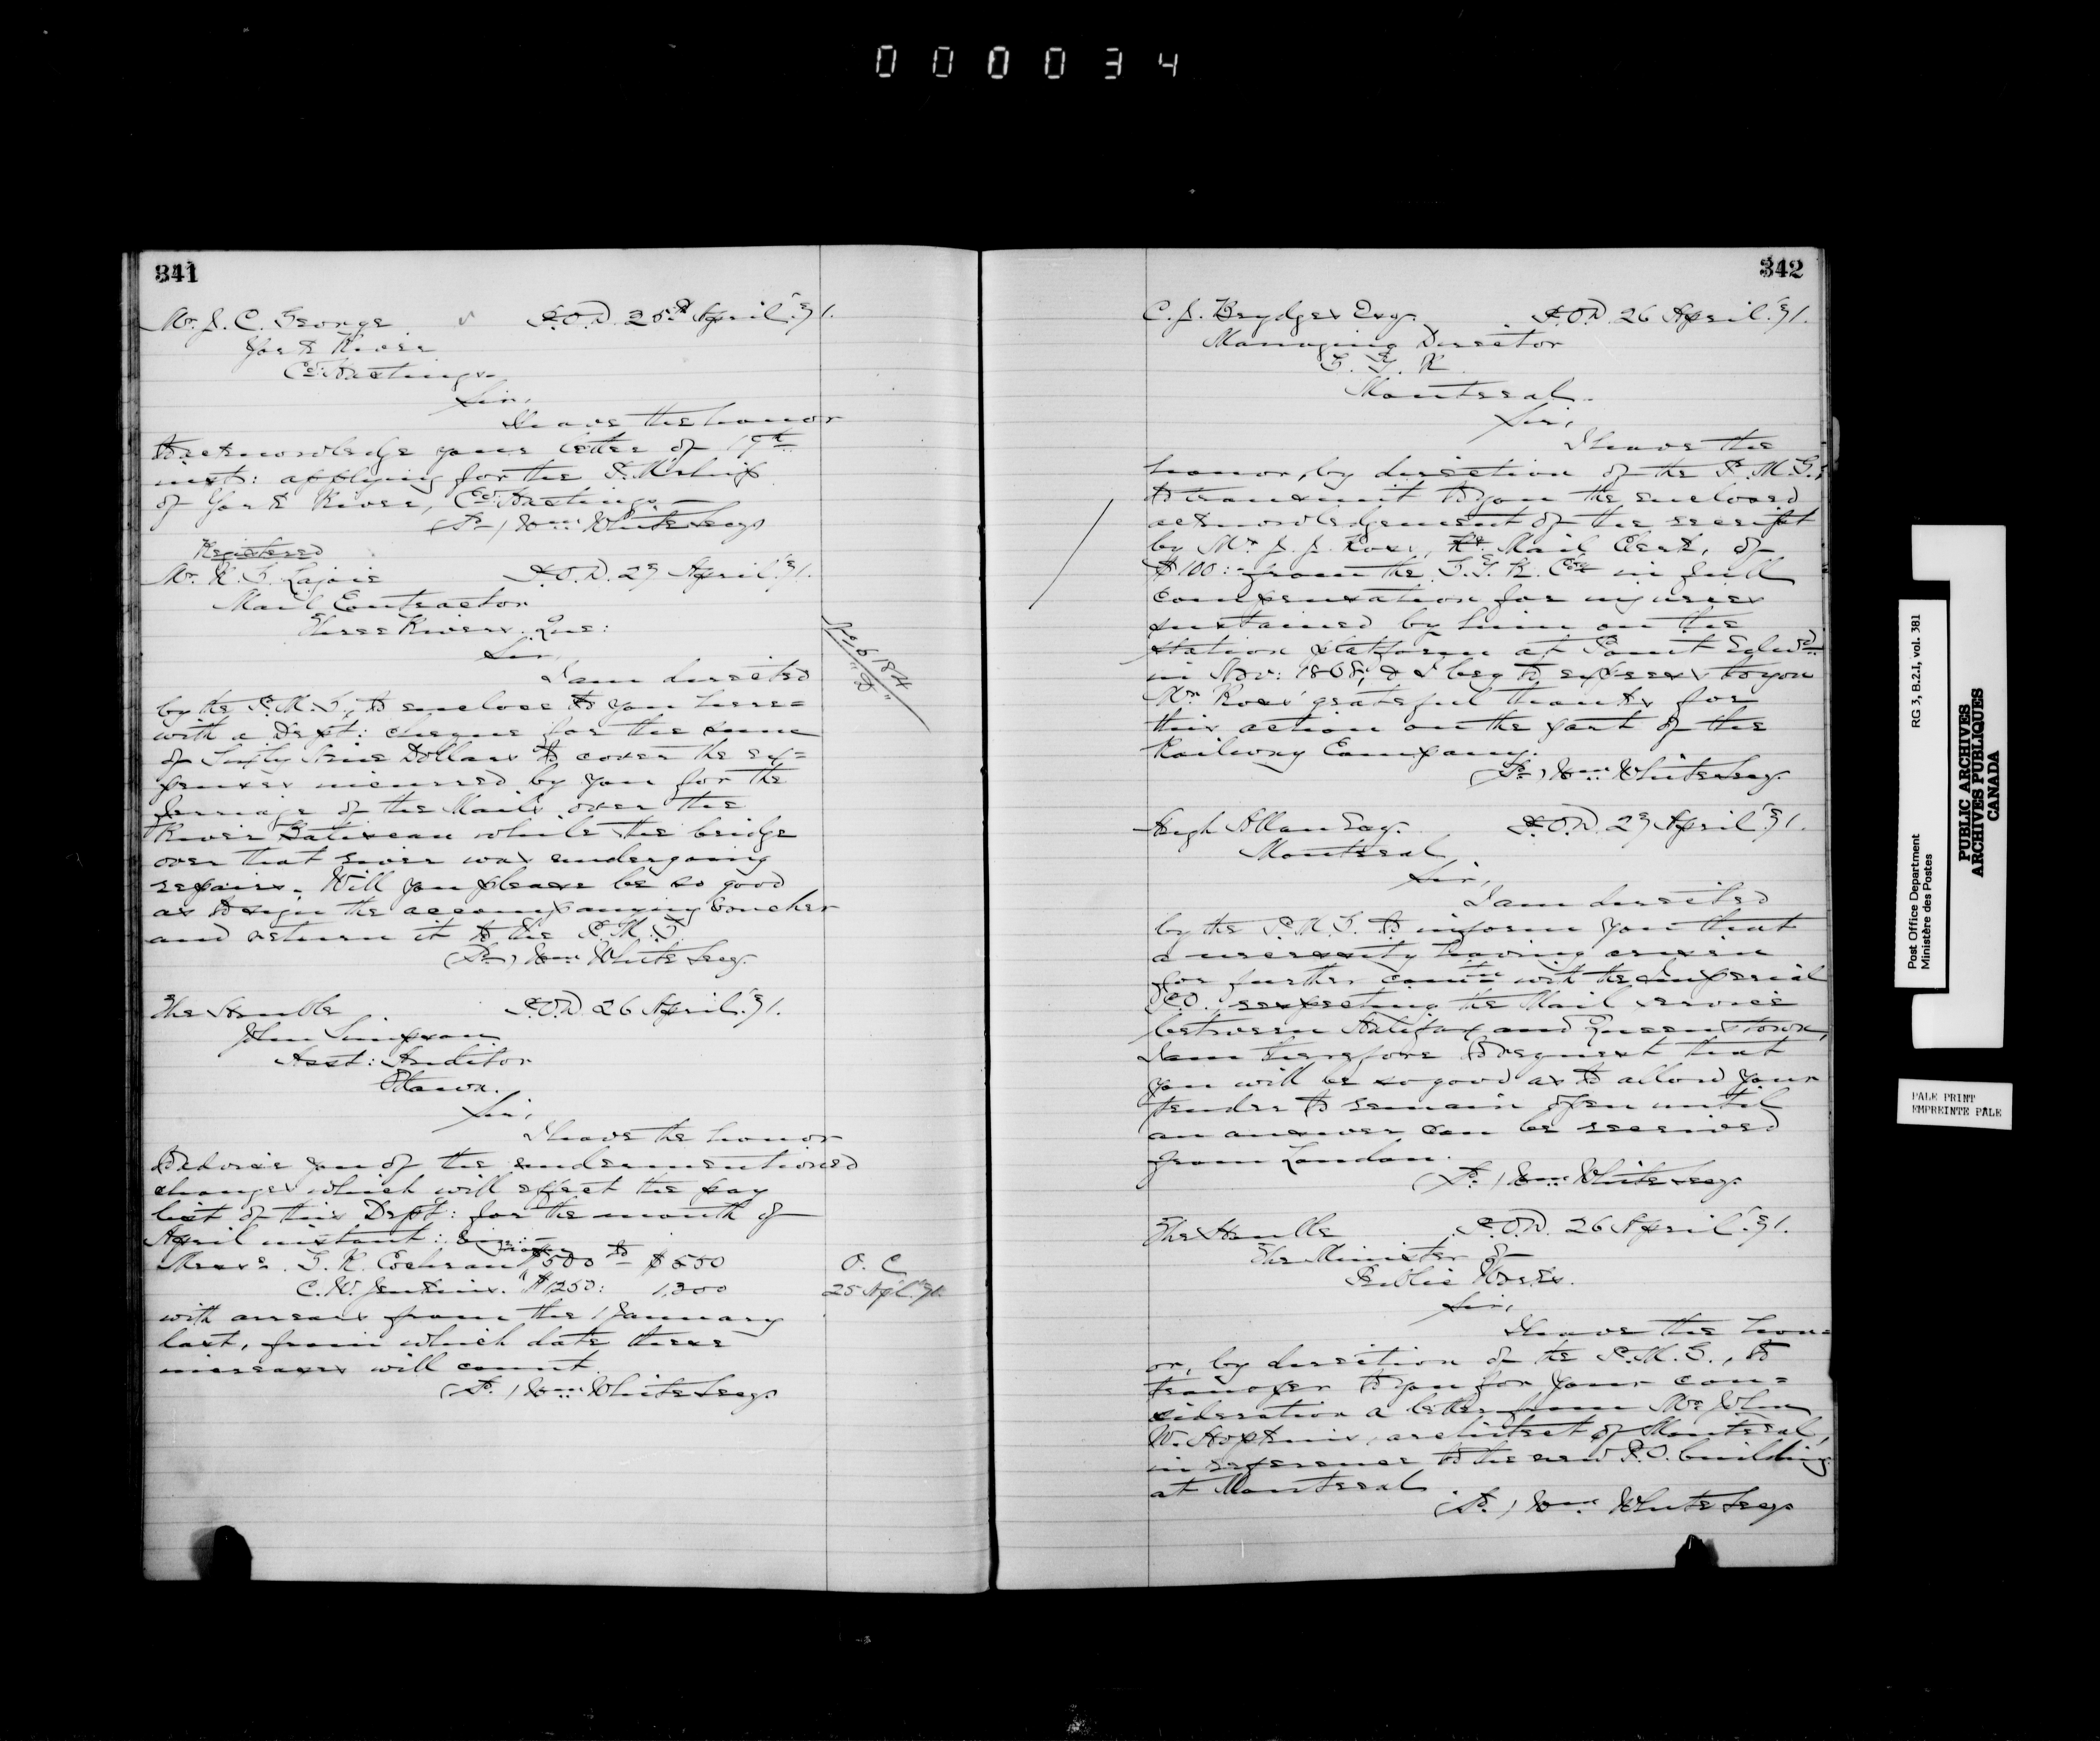 000034
341
Mr. J. C. George P.O.D. 25th April '71.
York River
Co. Hastings.
Sir,
I have the honor
to acknowledge your letter of 19th
inst: applying for the P.M'ship
of York River, Co. Hastings.
(Sd) Wm White Secy
Registered
Mr. R. G. Lajoie P.O.D. 27 April '71.
Mail Contractor
Three Rivers. Que:
Sir,
I am directed
by the P.M.G, to enclose to you here=
with a Dept: cheque for the sum
of Dollars to cover the ex=
penses incurred by you for the
ferriage of the Mails over the
River Batiscan while the bridge
over that river was undergoing
repairs. Will you please be so good
as to sign the accompanying voucher
and return it to the P.M.G
(Sd) Wm White Secy.
The Honble P.O.D. 26 April '71.
John Simpson
Asst: Auditor
Ottawa.
Sir,
I have the honor
to advise you of the undermentioned
changes which will effect the pay
list of this Dept: for the month of
April instant:
Messrs. G. R. Cochran from $500 to $550
C. W. Jenkins. " $1250: 1,300
O. C.
25 Apl. '71.
with arrears from the 1 January
last, from which date these
increases will count.
(Sd.) Wm White Secy.
342
C. J. Brydges Esq. P.O.D. 26 April '71.
Managing Director
G. T. R.
Montreal.
Sir,
I have the
honor, by direction of the P.M.G.,
to transmit to you the enclosed
acknowledgement of the receipt
by Mr. J. J. Ross, Mail Clerk, of
$100: from the G.T.R. Coy in full
compensation for injuries
sustained by him on the
station platform at Point Edwd
in Nov: 1868, & I beg to express to you
Mr. Ross' grateful thanks for
this action on the part of the
Railway Company.
(Sd) Wm White Secy.
Hugh Allan Esq. P.O.D. 27 April '71.
Montreal
Sir,
I am directed
by the P.M.G. to inform you that
a necessity having arisen
for further comn with the Imperial
P.O., respecting the Mail service
between Halifax and Queenstown,
I am therefore to request that
you will be so good as to allow your
tender to remain open until
an answer can be received
from London.
(Sd.) Wm White Secy.
The Honble P.O.D. 26 April '71.
The Minister of
Public Works.
Sir,
I have the hon=
or, by direction of the P.M.G., to
transfer to you for your con=
sideration a letter from Mr. John
W. Hopkins, architect of Montreal,
in reference to the new P.O. building
at Montreal
(Sd.) Wm White Secy
Post Office Department RG 3, B.2.I, vol. 381
Ministère des Postes
PUBLIC ARCHIVES
ARCHIVES PUBLIQUES
CANADA
PALE PRINT
EMPREINTE PÂLE